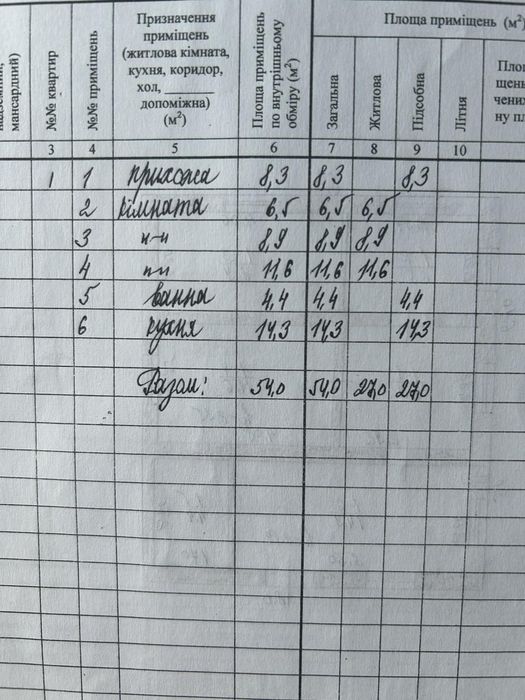 мансардний)
№№ квартир
№№ приміщень
Призначення
приміщень
(житлова кімната,
кухня, коридор,
хол, ________
допоміжна)
(м²)
Площа приміщень
по внутрішньому
обміру (м²)
Площа приміщень (м²)
Загальна
Житлова
Підсобна
Літня
3 4 5 6 7 8 9 10
1 1 прихожа 8,3 8,3 8,3
2 кімната 6,5 6,5 6,5
3 н-н 8,9 8,9 8,9
4 пп 11,6 11,6 11,6
5 ванна 4,4 4,4 4,4
6 кухня 14,3 14,3 14,3
Разом: 54,0 54,0 27,0 27,0